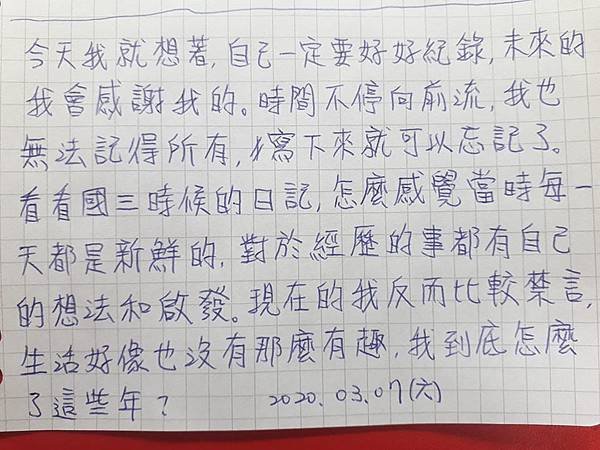 今天我就想著,自己一定要好好紀錄,未來的
我會感謝我的。時間不停向前流,我也
無法記得所有,寫下來就可以忘記了。
看看國三時候的日記,怎麼感覺當時每一
天都是新鮮的,對於經歷的事都有自己
的想法和啟發。現在的我反而比較禁言,
生活好像也沒有那麼有趣,我到底怎麼
了這些年?　2020.03.07(六)